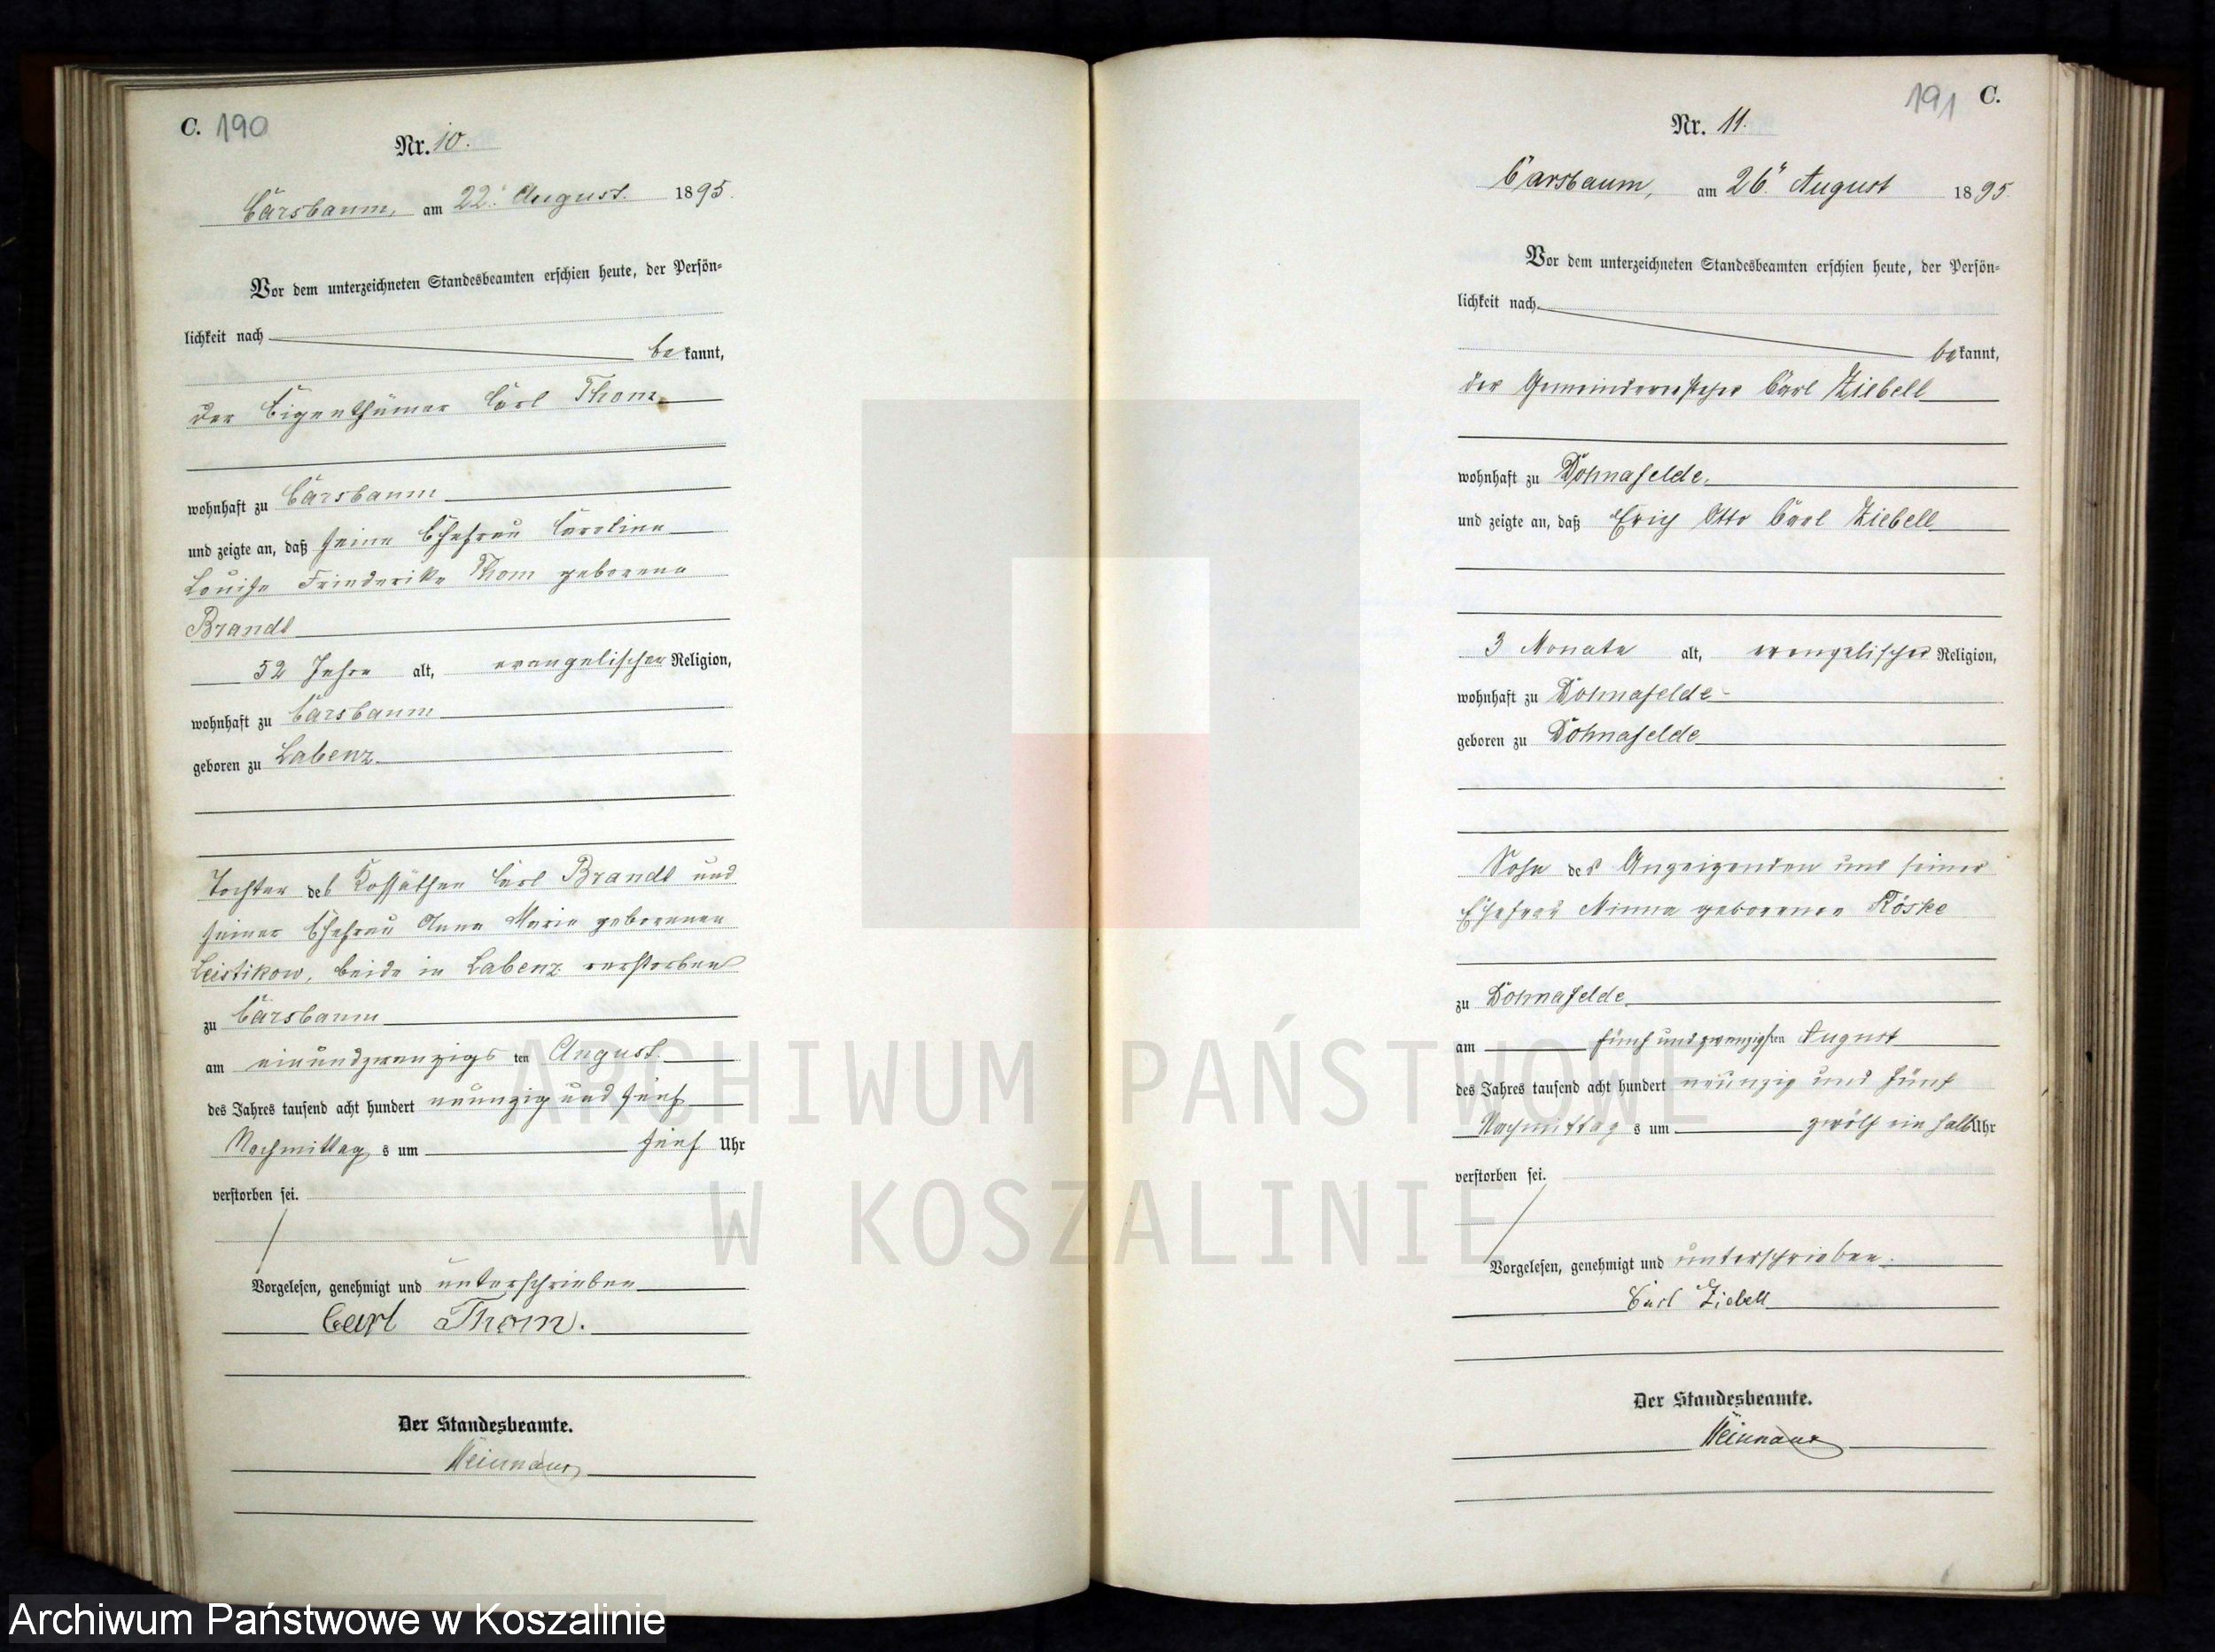 C. 190
Nr. 10.
Carsbaum, am 22. August. 1895.
Vor dem unterzeichneten Standesbeamten erschien heute, der Persön-
lichkeit nach
bekannt,
der Eigenthümer Carl Thom
wohnhaft zu Carsbaum
und zeigte an, daß seine Ehefrau Caroline
Louise Friederike Thom geborene
Brandt
52 Jahre alt, evangelischer Religion,
wohnhaft zu Carsbaum
geboren zu Labenz.
Tochter des Kossäthen Carl Brandt und
seiner Ehefrau Anna Marie geborenen
Leistikow, beide in Labenz verstorben
zu Carsbaum
am einundzwanzigsten August.
des Jahres tausend acht hundert neunzig und fünf
Nachmittags um fünf Uhr
verstorben sei.
Vorgelesen, genehmigt und unterschrieben
Carl Thom.
Der Standesbeamte.
191 C.
Nr. 11.
Carsbaum, am 26. August 1895.
Vor dem unterzeichneten Standesbeamten erschien heute, der Persön-
lichkeit nach
bekannt,
der Gemeindevorsteher Carl Ziebell
wohnhaft zu Dohnafelde.
und zeigte an, daß Erich Otto Carl Ziebell
3 Monate alt, evangelischer Religion,
wohnhaft zu Dohnafelde
geboren zu Dohnafelde
Sohn des Anzeigenden und seiner
Ehefrau Minna geborenen Röske
zu Dohnafelde
am fünf und zwanzigsten August
des Jahres tausend acht hundert neunzig und fünf
Nachmittags um zwölf ein halb Uhr
verstorben sei.
Vorgelesen, genehmigt und unterschrieben.
Carl Ziebell
Der Standesbeamte.
ARCHIWUM PAŃSTWOWE
W KOSZALINIE
Archiwum Państwowe w Koszalinie